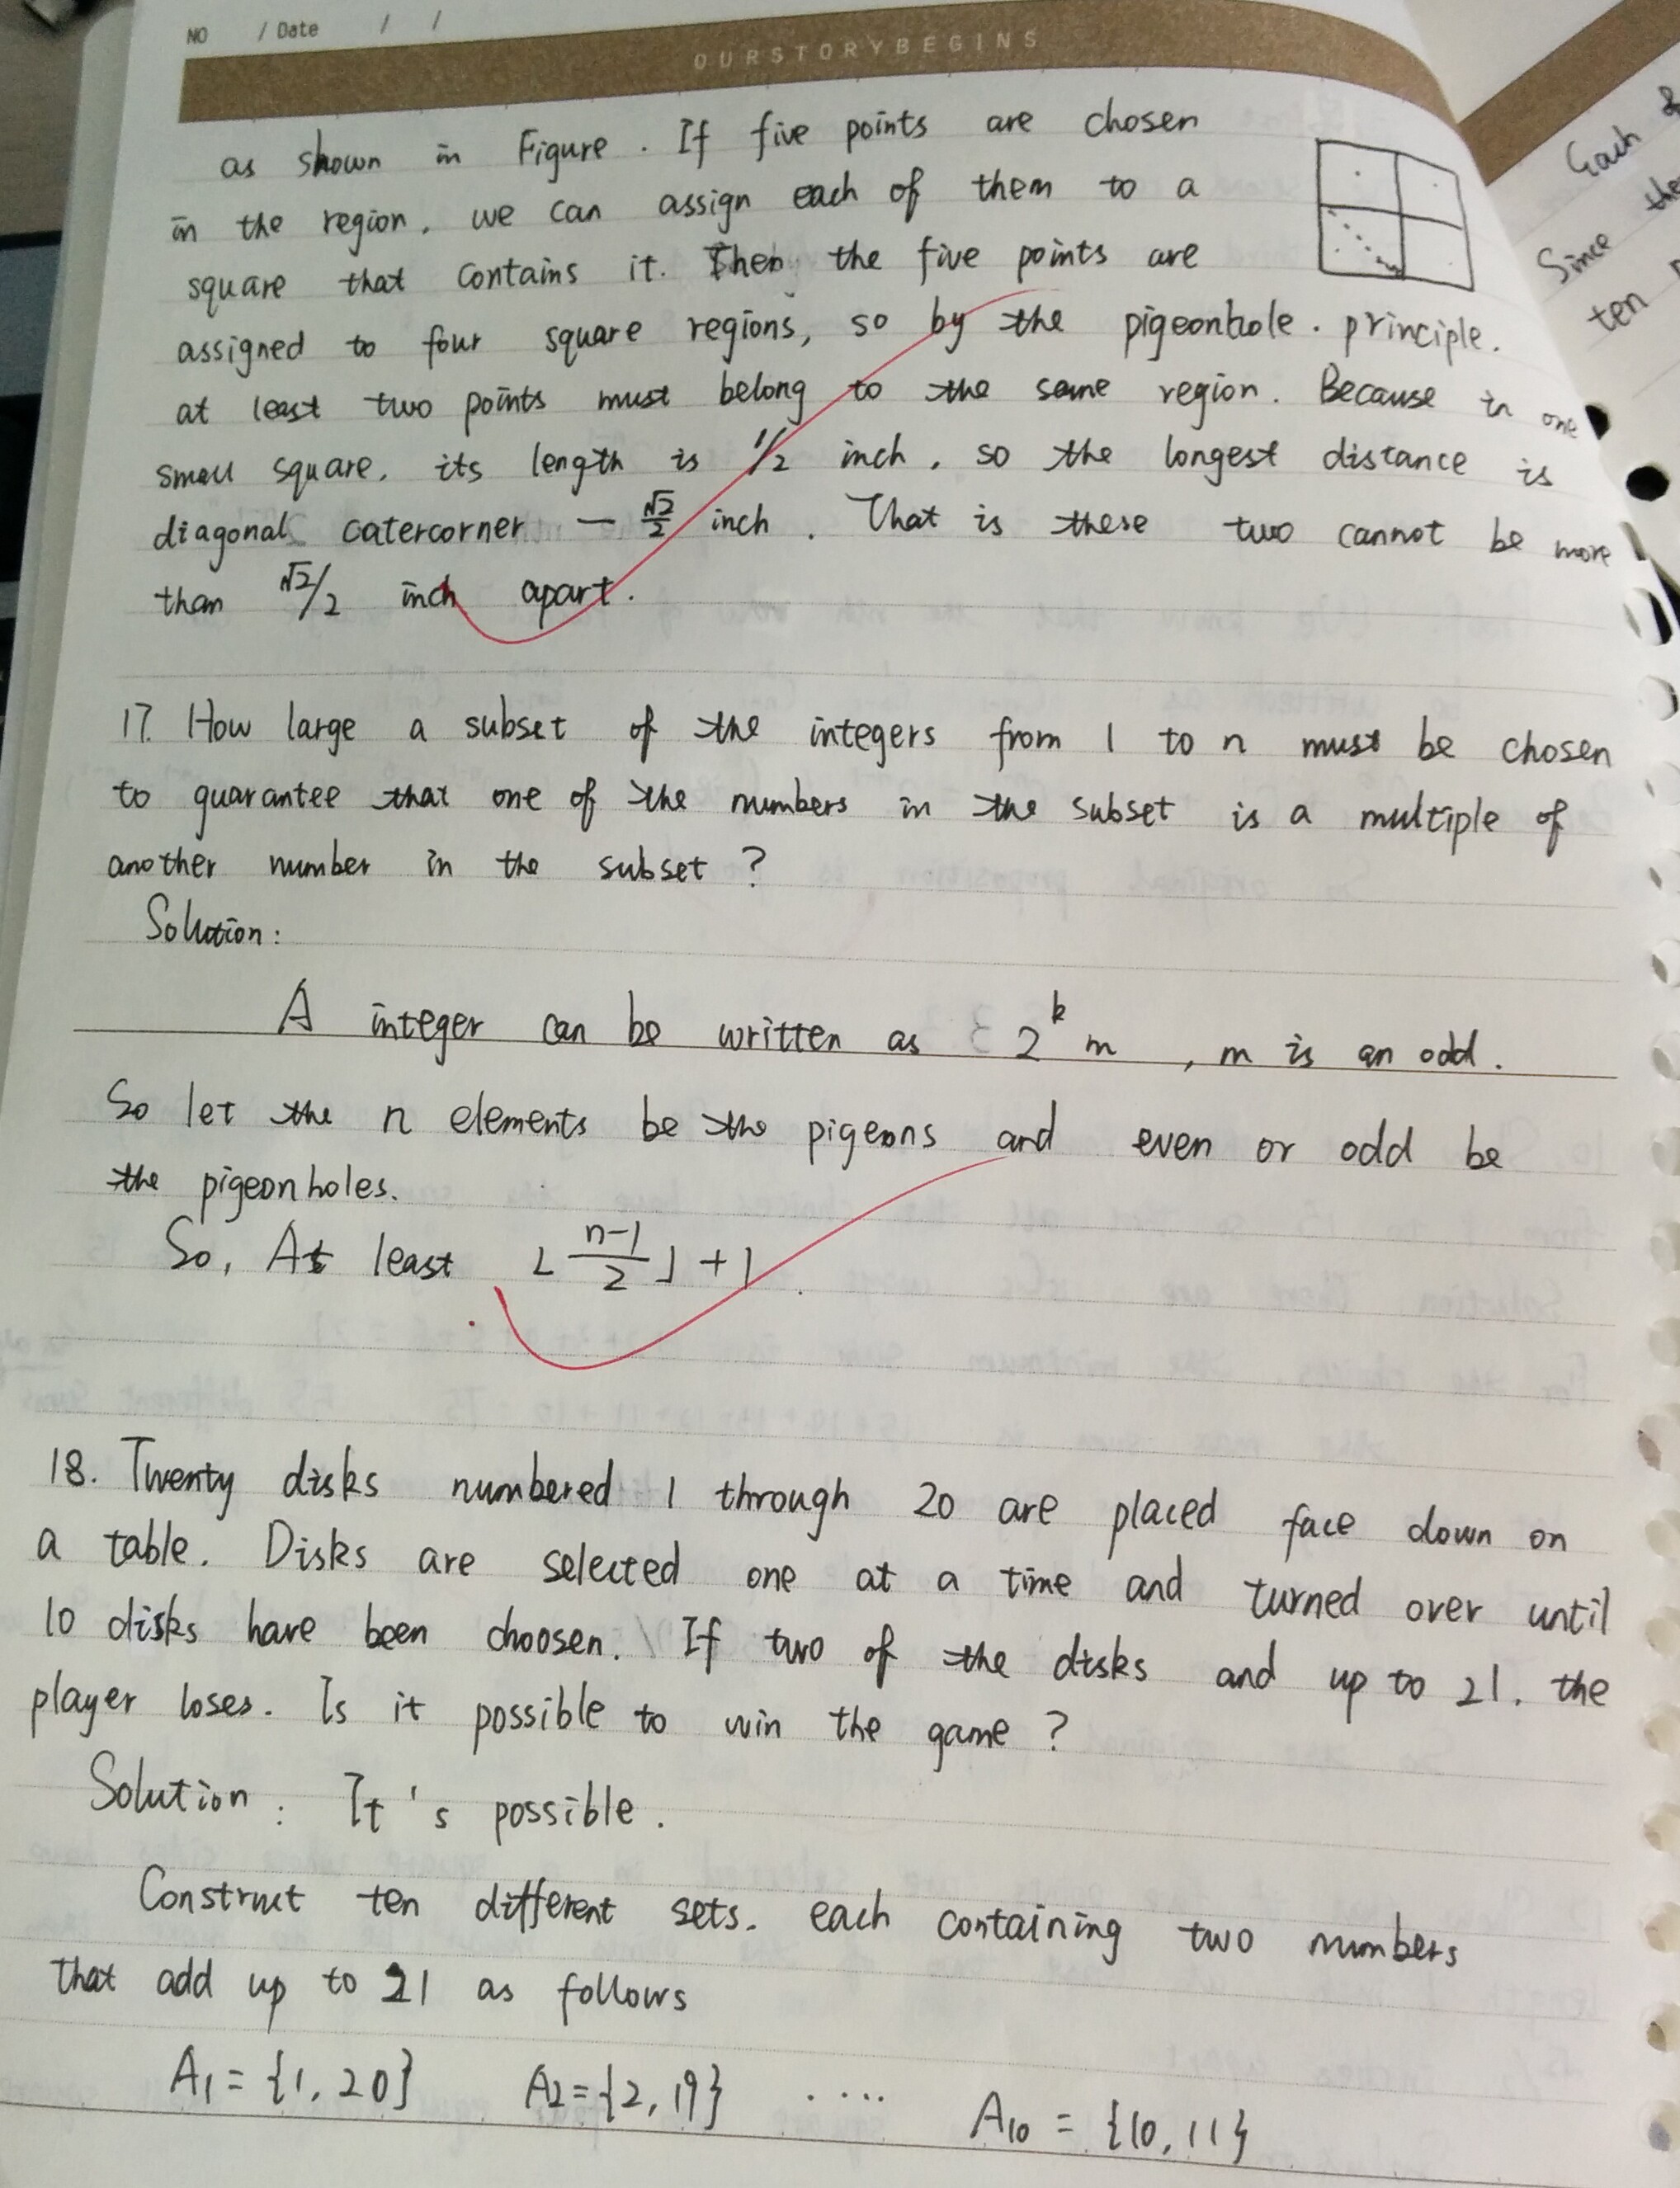 NO / Date / /
OURSTORYBEGINS
as shown in Figure. If five points are chosen
in the region, we can assign each of them to a
square that contains it. Then the five points are
assigned to four square regions, so by the pigeonhole. principle.
at least two points must belong to the same region. Because in one
small square, its length is 1/2 inch, so the longest distance is
diagonal catercorner — √2/2 inch. That is these two cannot be more
than √2/2 inch apart.
17. How large a subset of the integers from 1 to n must be chosen
to guarantee that one of the numbers in the subset is a multiple of
another number in the subset?
Solution:
A integer can be written as 2^k m, m is an odd.
So let the n elements be the pigeons and even or odd be
the pigeonholes.
So, At least ⌊(n-1)/2⌋+1.
18. Twenty disks numbered 1 through 20 are placed face down on
a table. Disks are selected one at a time and turned over until
10 disks have been choosen. If two of the disks and up to 21. the
player loses. Is it possible to win the game?
Solution: It's possible.
Construct ten different sets. each containing two numbers
that add up to 21 as follows
A1={1,20} A2={2,19} .... A10={10,11}
Each
the
Since
ten